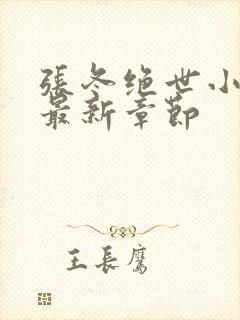 張冬绝世小
最新章節
王長鷹